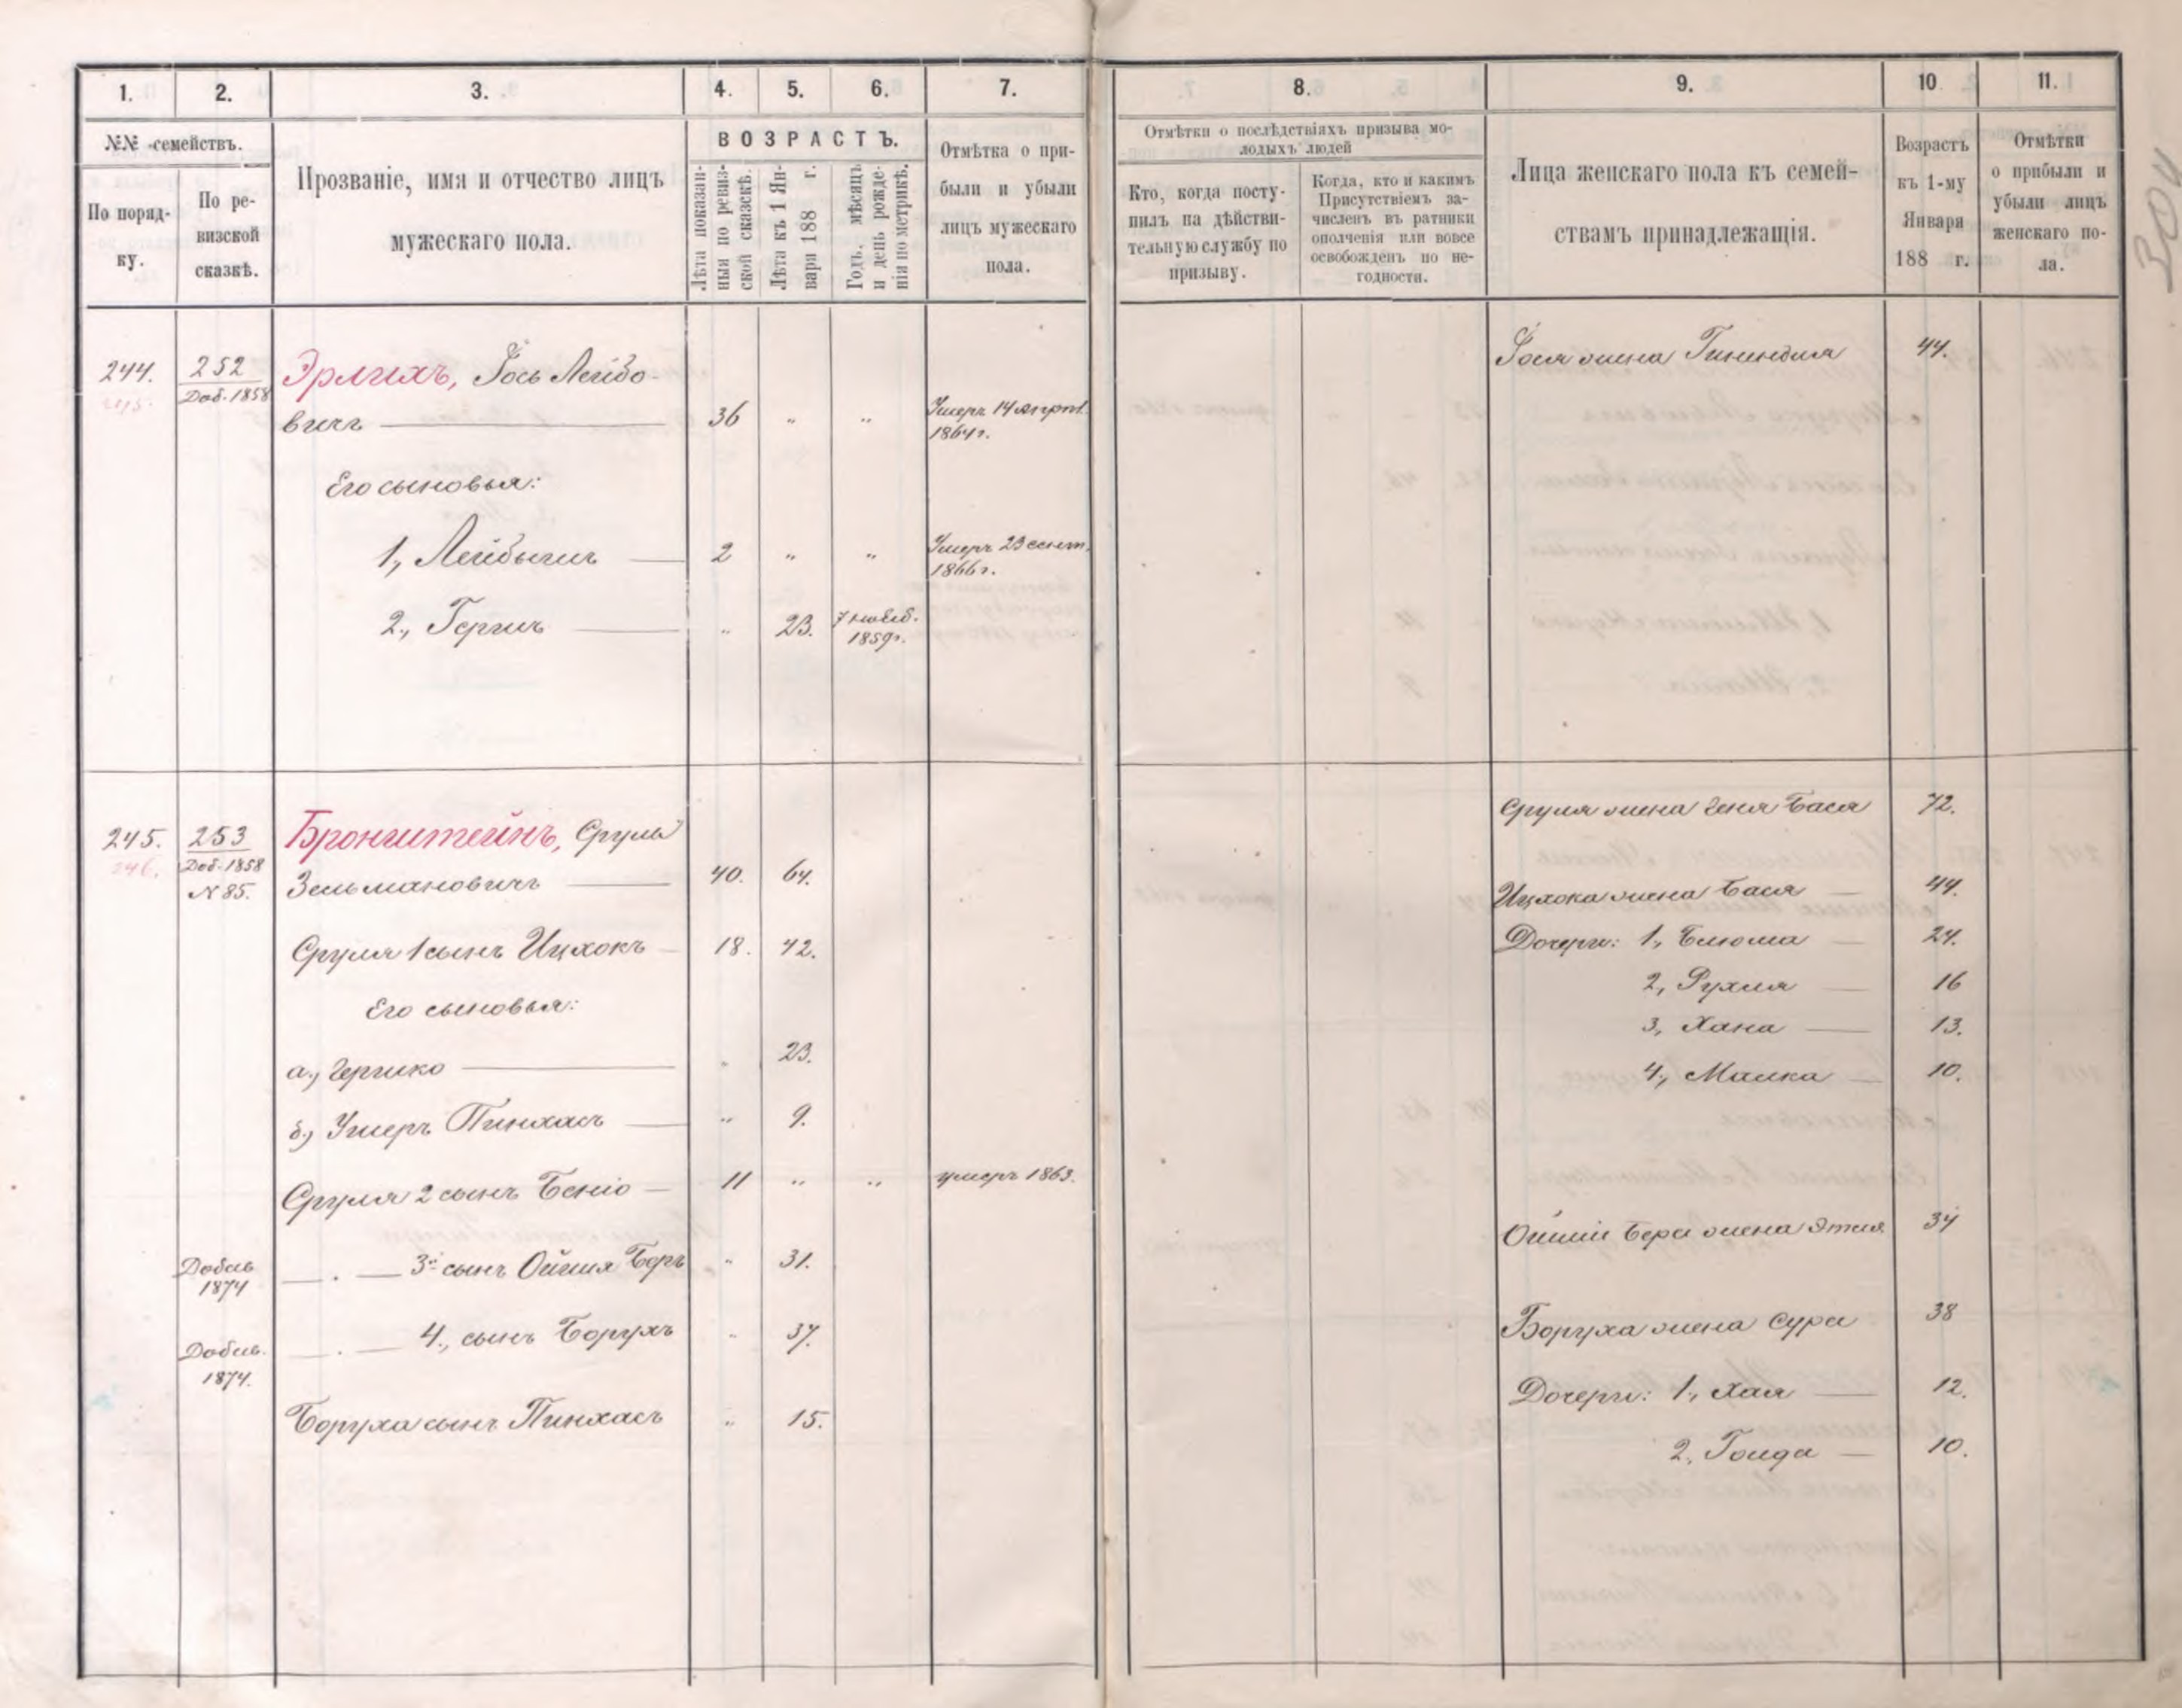 1. 2. 3. 4. 5. 6. 7. 8. 9. 10 11.
№№ -семействъ.
По поряд-
ку.
По ре-
визской
сказкѣ.
Прозваніе, имя и отчество лицъ
мужескаго пола.
ВОЗРАСТЪ.
Лѣта показан-
ныя по ревиз-
ской сказскѣ.
Лѣта къ 1 Ян-
варя 188 г.
Годъ, мѣсяцъ
и день рожде-
нія по метрикѣ.
Отмѣтка о при-
были и убыли
лицъ мужескаго
пола.
Отмѣтки о послѣдствіяхъ призыва мо-
лодыхъ людей
Кто, когда посту-
пилъ на дѣйстви-
тельную службу по
призыву.
Когда, кто и какимъ
Присутствіемъ за-
численъ въ ратники
ополченія или вовсе
освобожденъ по не-
годности.
Лица женскаго пола къ семей-
ствамъ принадлежащія.
Возрастъ
къ 1-му
Января
188 г.
Отмѣтки
о прибыли и
убыли лицъ
женскаго по-
ла.
304
244. 252 Эрлихъ, Іось Лейбо-
245. Доб. 1858
вичъ — 36 " " Умеръ 14 апрѣл.
1864 г.
Его сыновья:
1., — 2 " " Умеръ 23 сент.
1866 г.
2., Гершъ — " 23. 7 нояб.
1859 г.
Іося жена 44.
245. 253 Бронштейнъ, Сруль
246. Доб. 1858
№ 85. Зельмановичъ — 40. 64.
Сруля 1 сынъ Ицхокъ — 18. 42.
Его сыновья:
а., Гершко — " 23.
б., Ушеръ Пинхасъ — " 9.
Сруля 2 сынъ Беніо — 11 " " умеръ 1863.
Добав
1874 — . — 3й сынъ Ойшія Беръ " 31.
Добав.
1874. — . — 4., сынъ Борухъ " 37.
Боруха сынъ Пинхасъ " 15.
Сруля жена Геня Бася 72.
Ицхока жена Бася — 44.
Дочери: 1., Блюма — 24.
2, Рухля — 16
3, Хана — 13.
4., Малка — 10.
Ойшіи Бера жена Этля 34
Боруха жена Сура 38
Дочери: 1., Хая — 12.
2., Голда — 10.